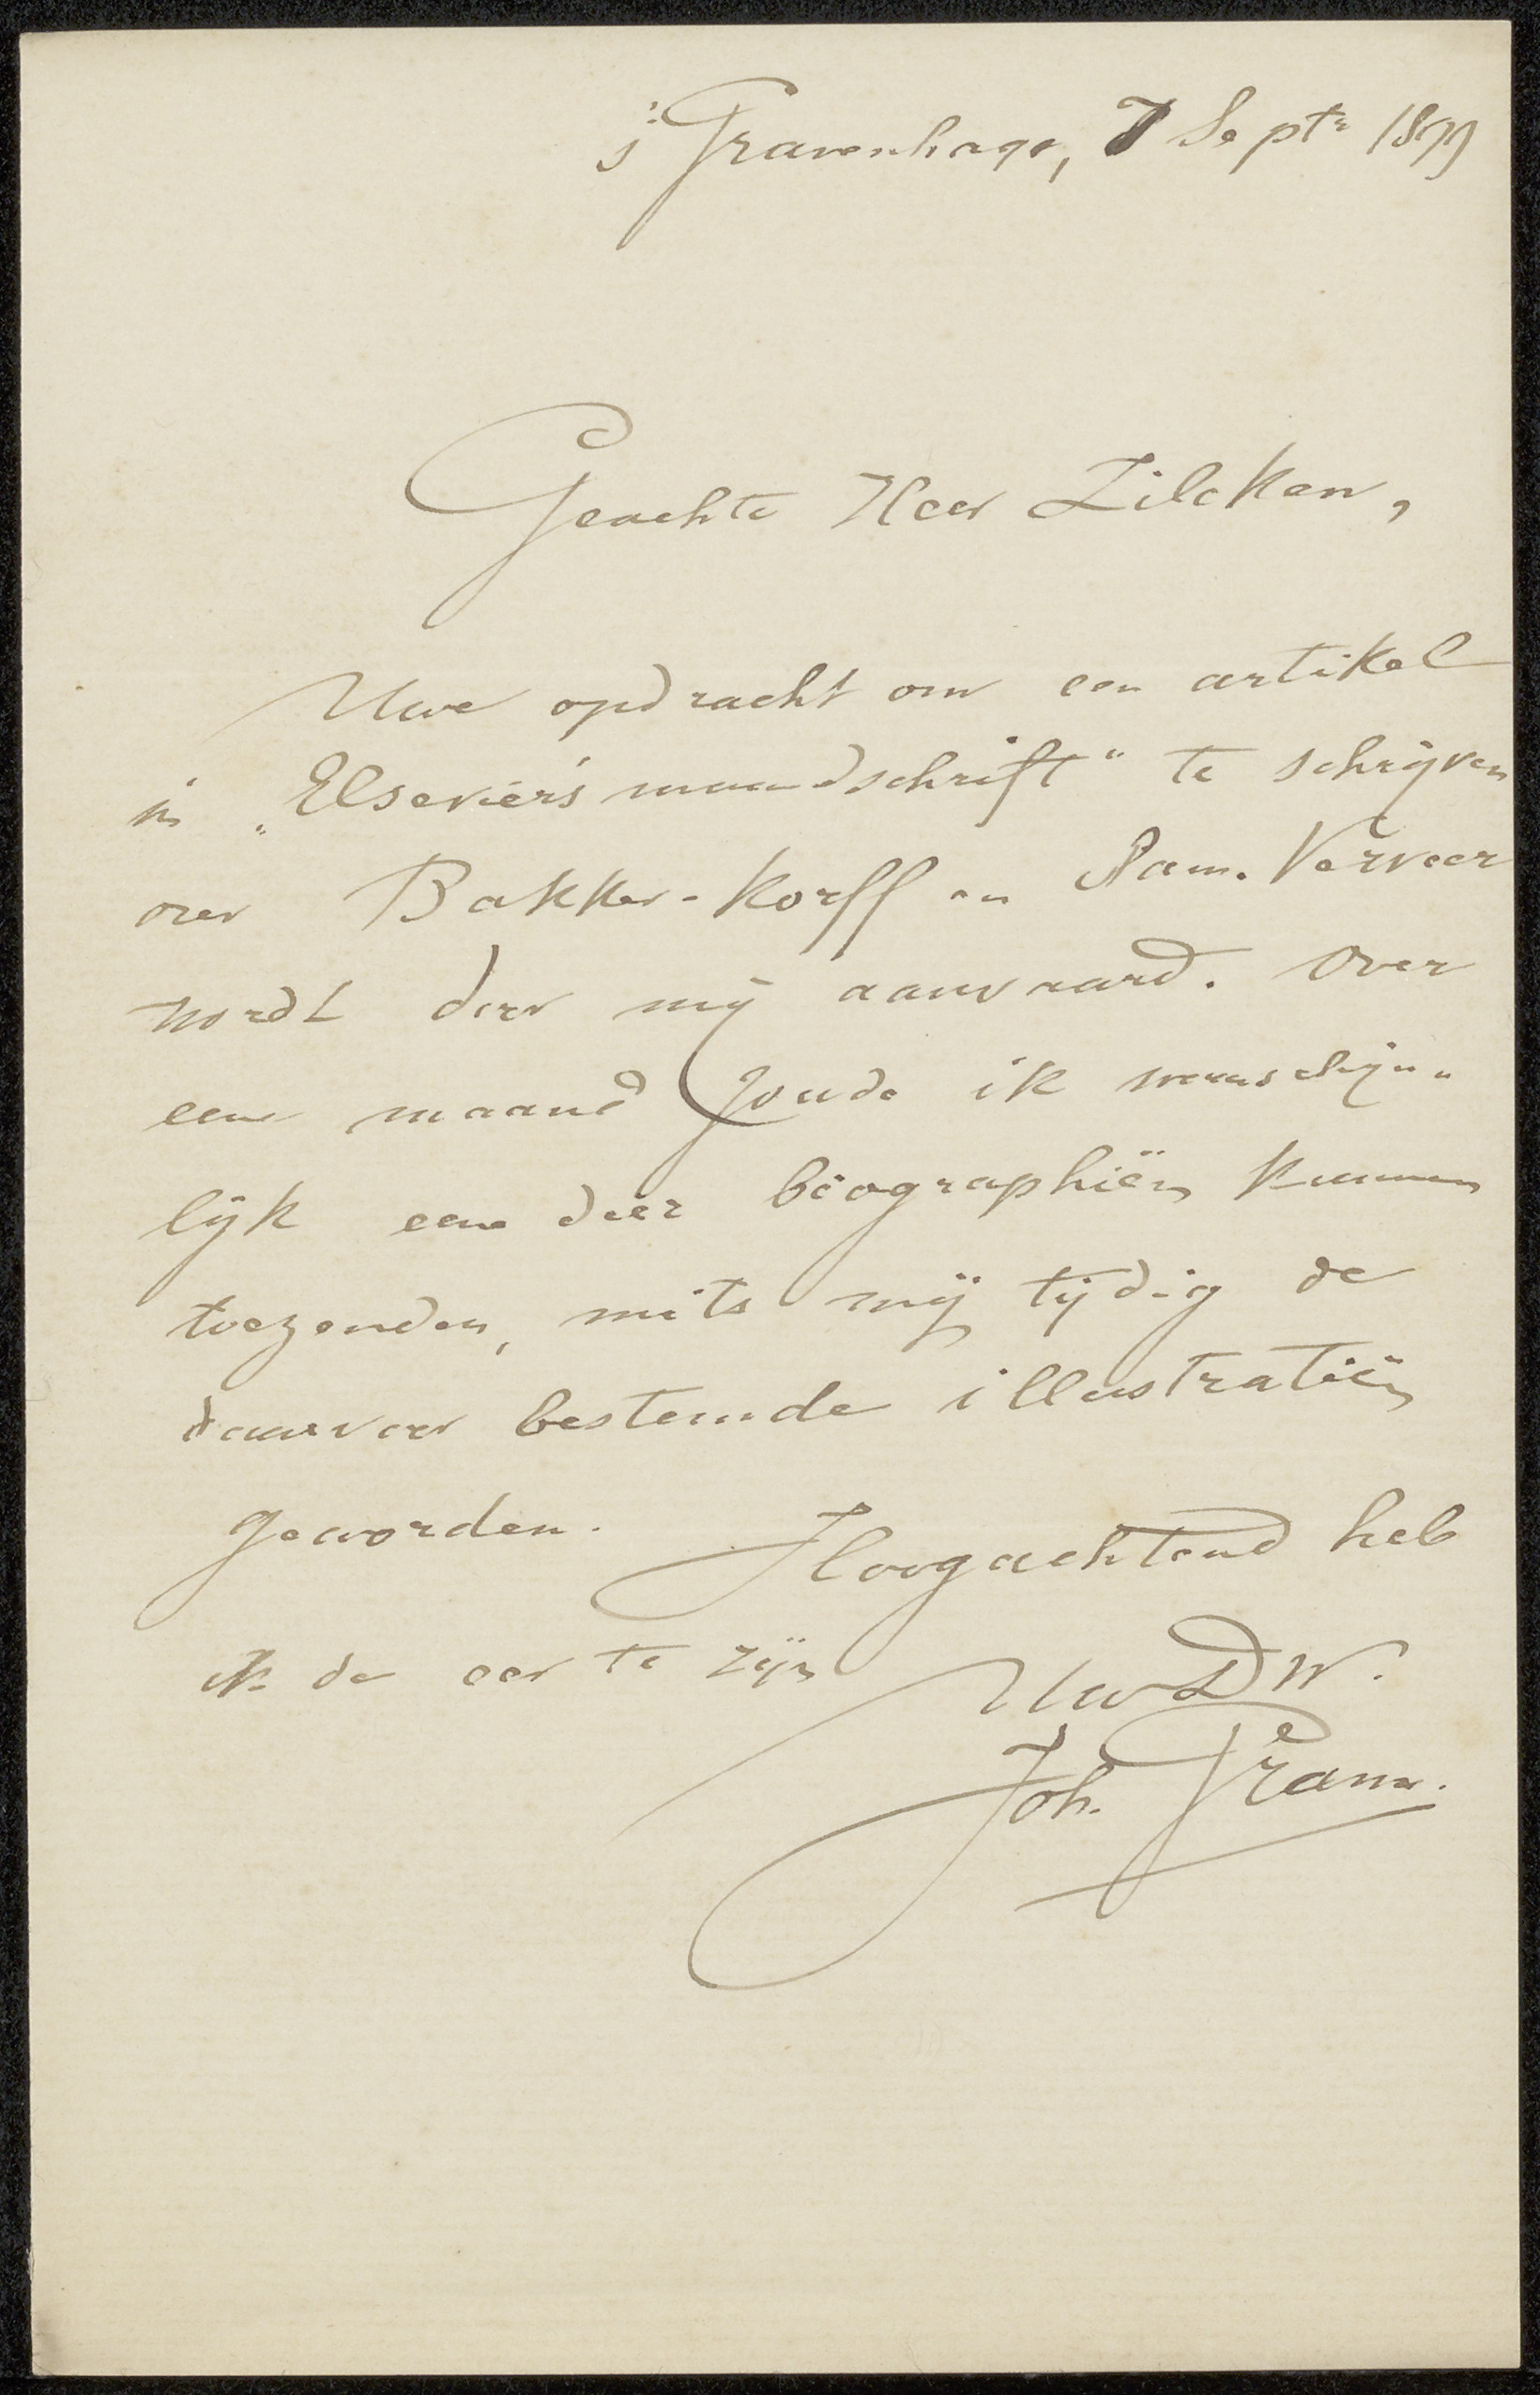 's Gravenhage, 7 Septr 1899
Geachte Heer Zilcken,
Uwe opdracht om een artikel
in „Elsevier's maandschrift" te schrijven
over Bakker-Korff en Sam. Verveer
wordt door mij aanvaard. Over
een maand zoude ik waarschijn"
lijk eene dier biographiën kunnen
toezenden, mits mij tijdig de
daarvoor bestemde illustratiën
geworden. Hoogachtend heb
ik de eer te zijn UwDW.
Joh. Gram.